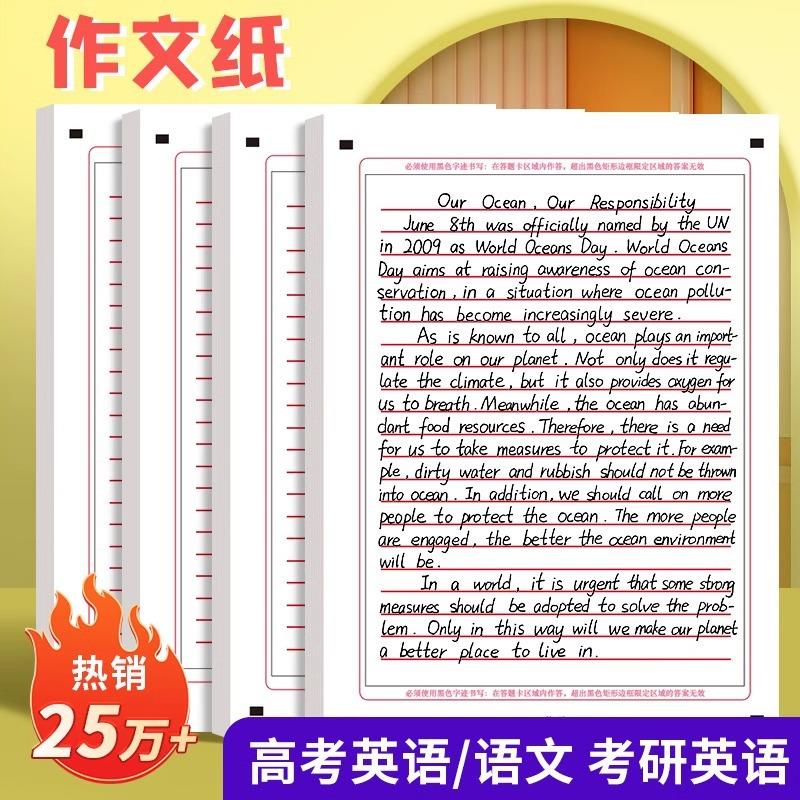 作文纸
必须使用黑色字迹书写：在答题卡区域内作答，超出黑色矩形边框限定区域的答案无效
Our Ocean, Our Responsibility
June 8th was officially named by the UN
in 2009 as World Oceans Day. World Oceans
Day aims at raising awareness of ocean con-
servation, in a situation where ocean pollu-
tion has become increasingly severe.
As is known to all, ocean plays an import-
ant role on our planet. Not only does it regu-
late the climate, but it also provides oxygen for
us to breath. Meanwhile, the ocean has abun-
dant food resources. Therefore, there is a need
for us to take measures to protect it. For exam-
ple, dirty water and rubbish should not be thrown
into ocean. In addition, we should call on more
people to protect the ocean. The more people
are engaged, the better the ocean environment
will be.
In a world, it is urgent that some strong
measures should be adopted to solve the prob-
lem. Only in this way will we make our planet
a better place to live in.
必须使用黑色字迹书写：在答题卡区域内作答，超出黑色矩形边框限定区域的答案无效
热销
25万+
高考英语/语文 考研英语